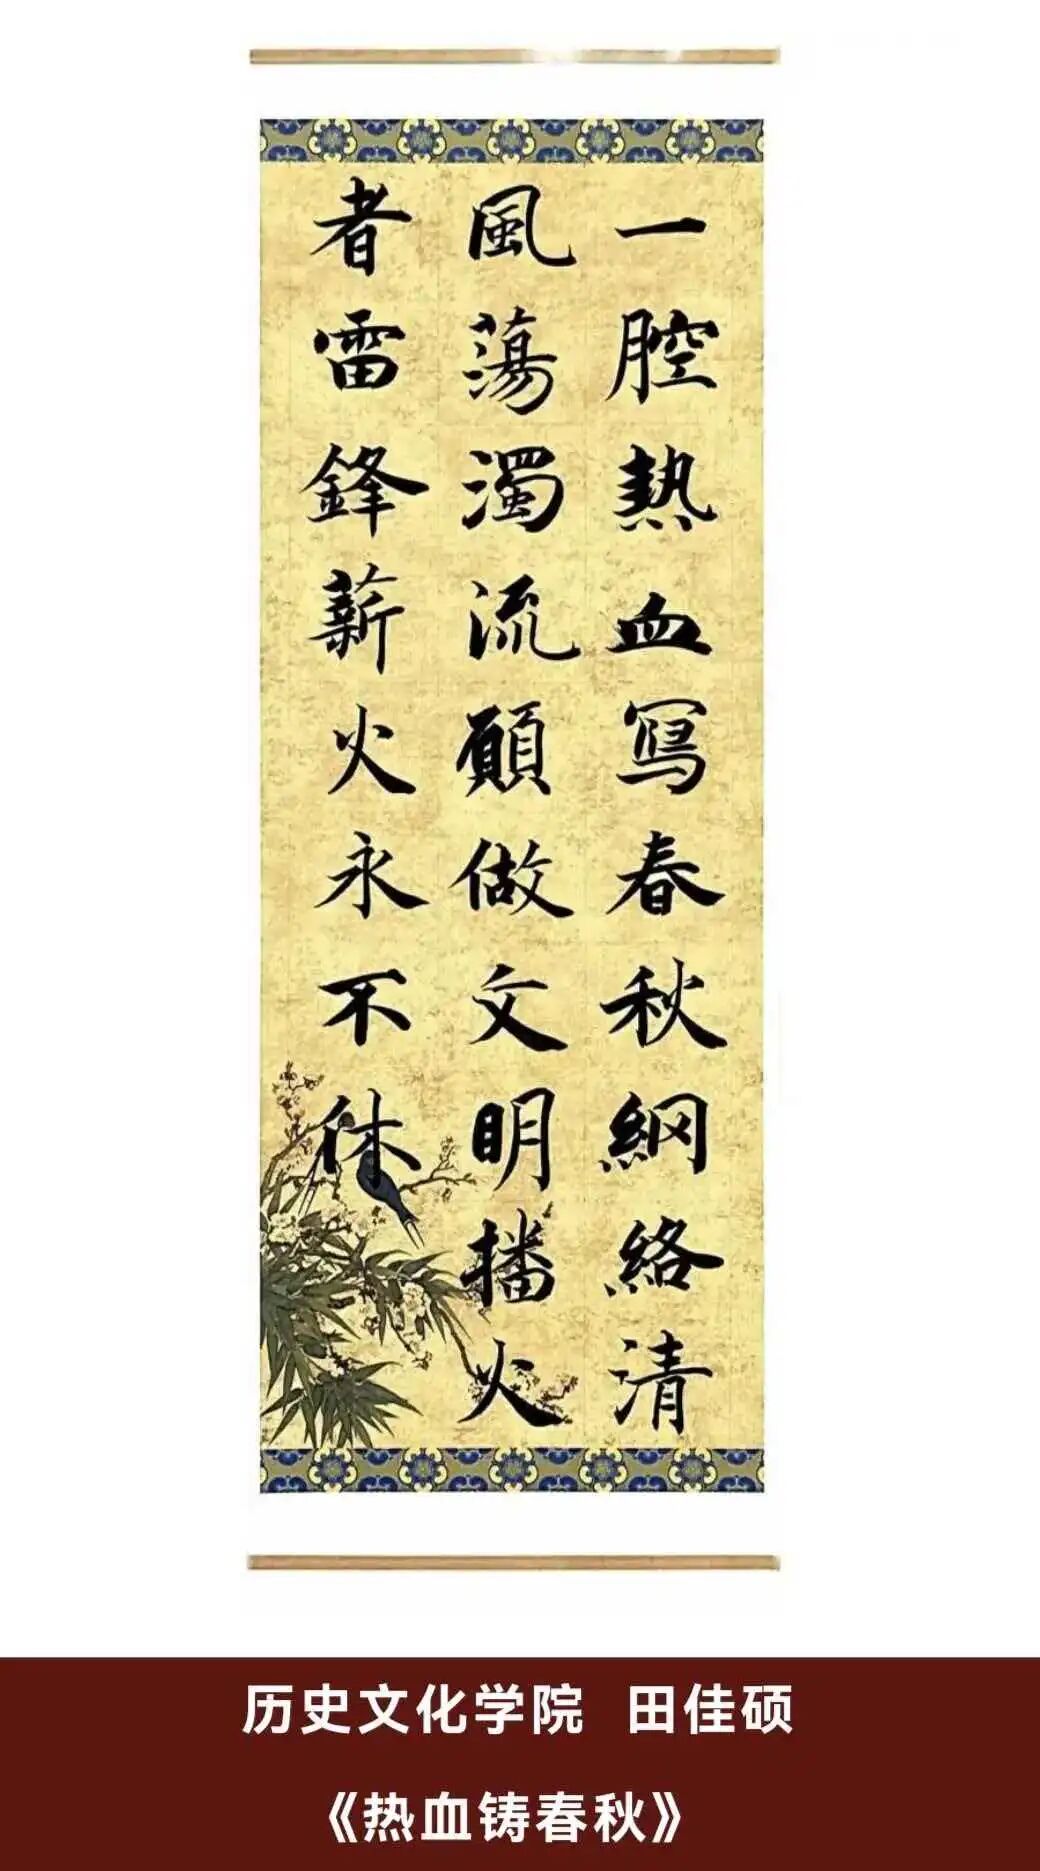 一腔熱血寫春秋網絡清
風蕩濁流願做文明播火
者雷鋒薪火永不休
历史文化学院 田佳硕
《热血铸春秋》